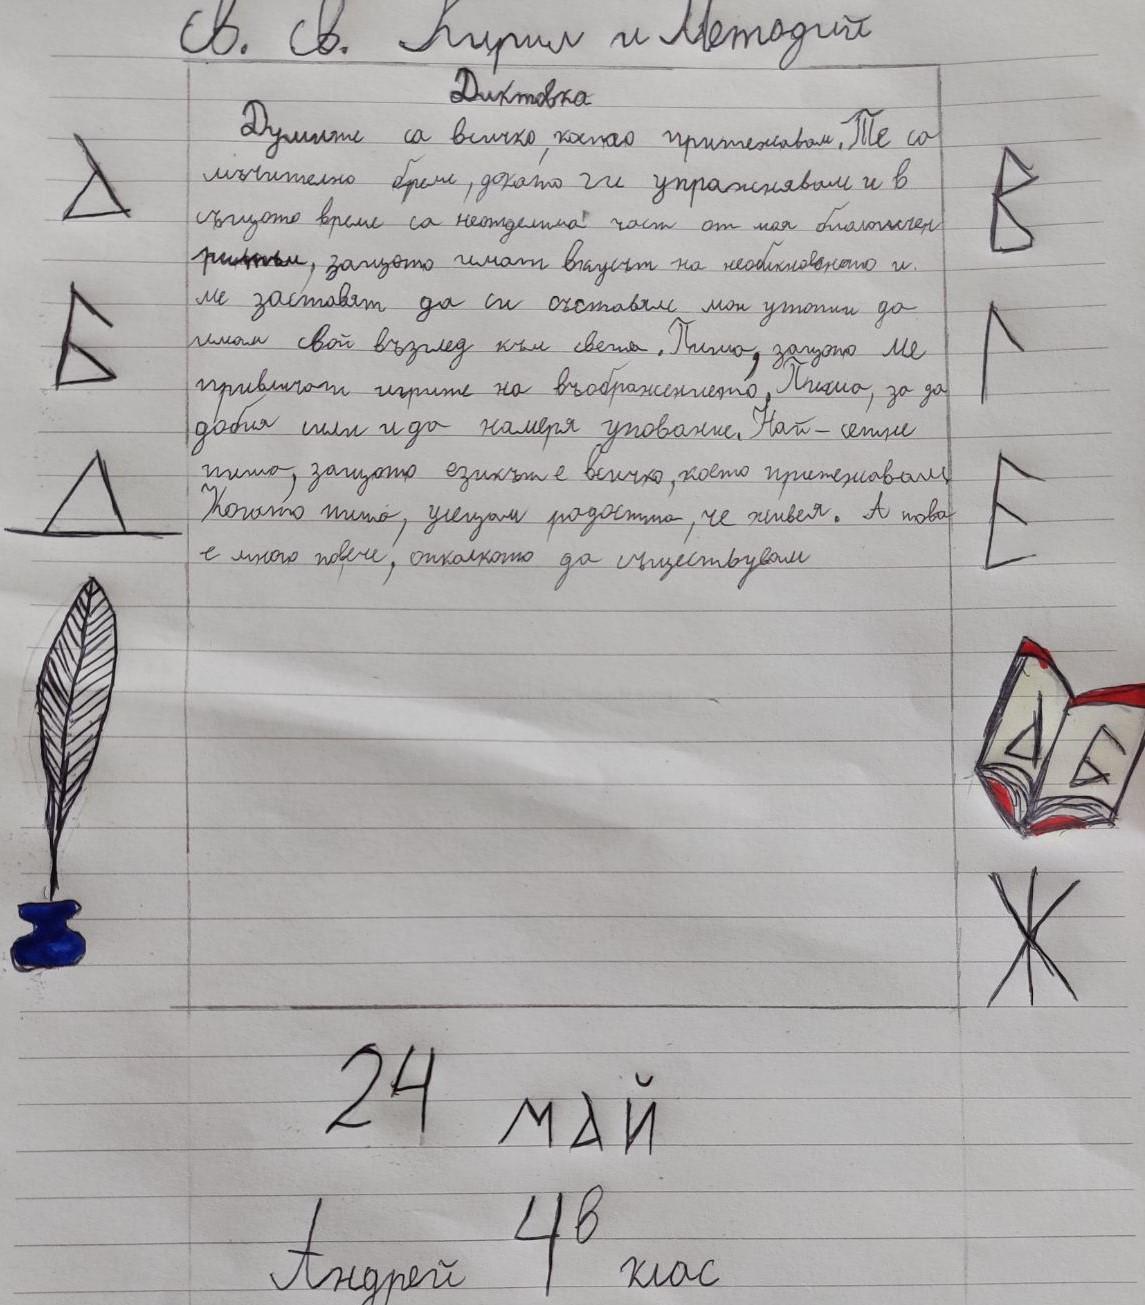 Св. Св. Кирил и Методий
Диктовка
Думите са всичко, което притежавам. Те са
мъчително бреме, докато ги упражнявам и в
същото време са неотделима част от моя биологичен
ритъм, защото имат вкусът на необикновеното и
ме заставят да си съставям мои утопии да
имам свой възглед към света. Пиша, защото ме
привличат игрите на въображението, Пиша, за да
добия сили и да намеря упование. Най-сетне
пиша, защото езикът е всичко, което притежавам
Когато пиша, усещам радостта, че живея. А това
е много повече, отколкото да съществувам
А
В
Б
Г
Д
Е
А Б
Ж
24 май
Андрей 4в клас